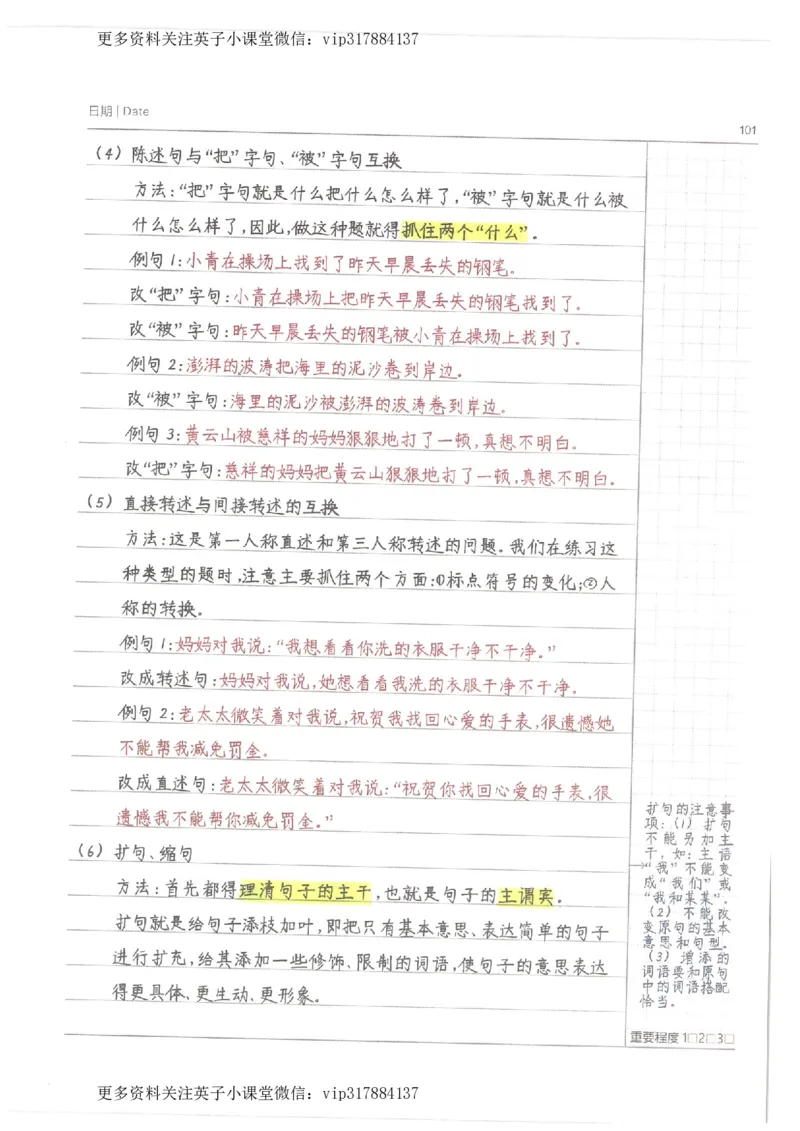 更多资料关注英子小课堂微信：vip317884137
日期 | Date
101
(4) 陈述句与“把”字句、“被”字句互换
方法：“把”字句就是什么把什么怎么样了，“被”字句就是什么被
什么怎么样了，因此，做这种题就得抓住两个“什么”。
例句1：小青在操场上找到了昨天早晨丢失的钢笔。
改“把”字句：小青在操场上把昨天早晨丢失的钢笔找到了。
改“被”字句：昨天早晨丢失的钢笔被小青在操场上找到了。
例句2：澎湃的波涛把海里的泥沙卷到岸边。
改“被”字句：海里的泥沙被澎湃的波涛卷到岸边。
例句3：黄云山被慈祥的妈妈狠狠地打了一顿，真想不明白。
改“把”字句：慈祥的妈妈把黄云山狠狠地打了一顿，真想不明白。
(5) 直接转述与间接转述的互换
方法：这是第一人称直述和第三人称转述的问题。我们在练习这
种类型的题时，注意主要抓住两个方面：①标点符号的变化；②人
称的转换。
例句1：妈妈对我说：“我想看看你洗的衣服干净不干净。”
改成转述句：妈妈对我说，她想看看我洗的衣服干净不干净。
例句2：老太太微笑着对我说，祝贺我找回心爱的手表，很遗憾她
不能帮我减免罚金。
改成直述句：老太太微笑着对我说：“祝贺你找回心爱的手表，很
遗憾我不能帮你减免罚金。”
(6) 扩句、缩句
方法：首先都得理清句子的主干，也就是句子的主谓宾。
扩句就是给句子添枝加叶，即把只有基本意思、表达简单的句子
进行扩充，给其添加一些修饰、限制的词语，使句子的意思表达
得更具体、更生动、更形象。
扩句的注意事
项：(1) 扩句
不能另加主
干，如：主语
“我”不能变
成“我们”或
“我和某某”。
(2) 不能改
变原句的基本
意思和句型。
(3) 增添的
词语要和原句
中的词语搭配
恰当。
重要程度 1□2□3□
更多资料关注英子小课堂微信：vip317884137